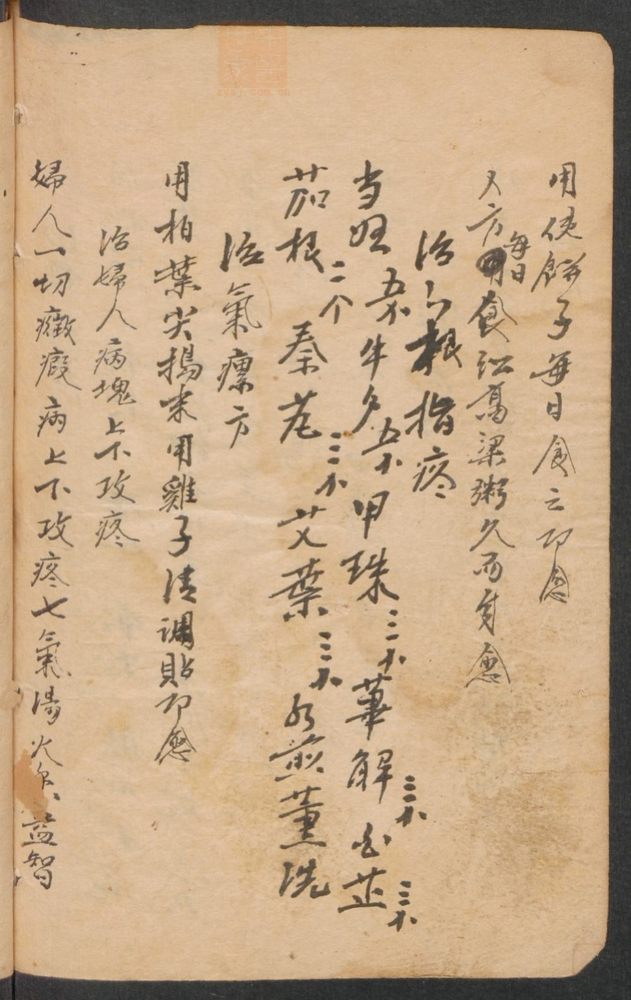 用使餅子每日食之即愈
又方每日用食红高粱粥久而自愈
治六根指疼
当归 五 牛夕 五 甲珠 三 萆解 三 白芷 三
茄根二个 秦艽 三 艾葉 三 水煎薰洗
治氣瘰方
用柏葉尖搗末用雞子清調貼即愈
治婦人病塊上下攻疼
婦人一切癥瘕病上下攻疼七氣湯 益智